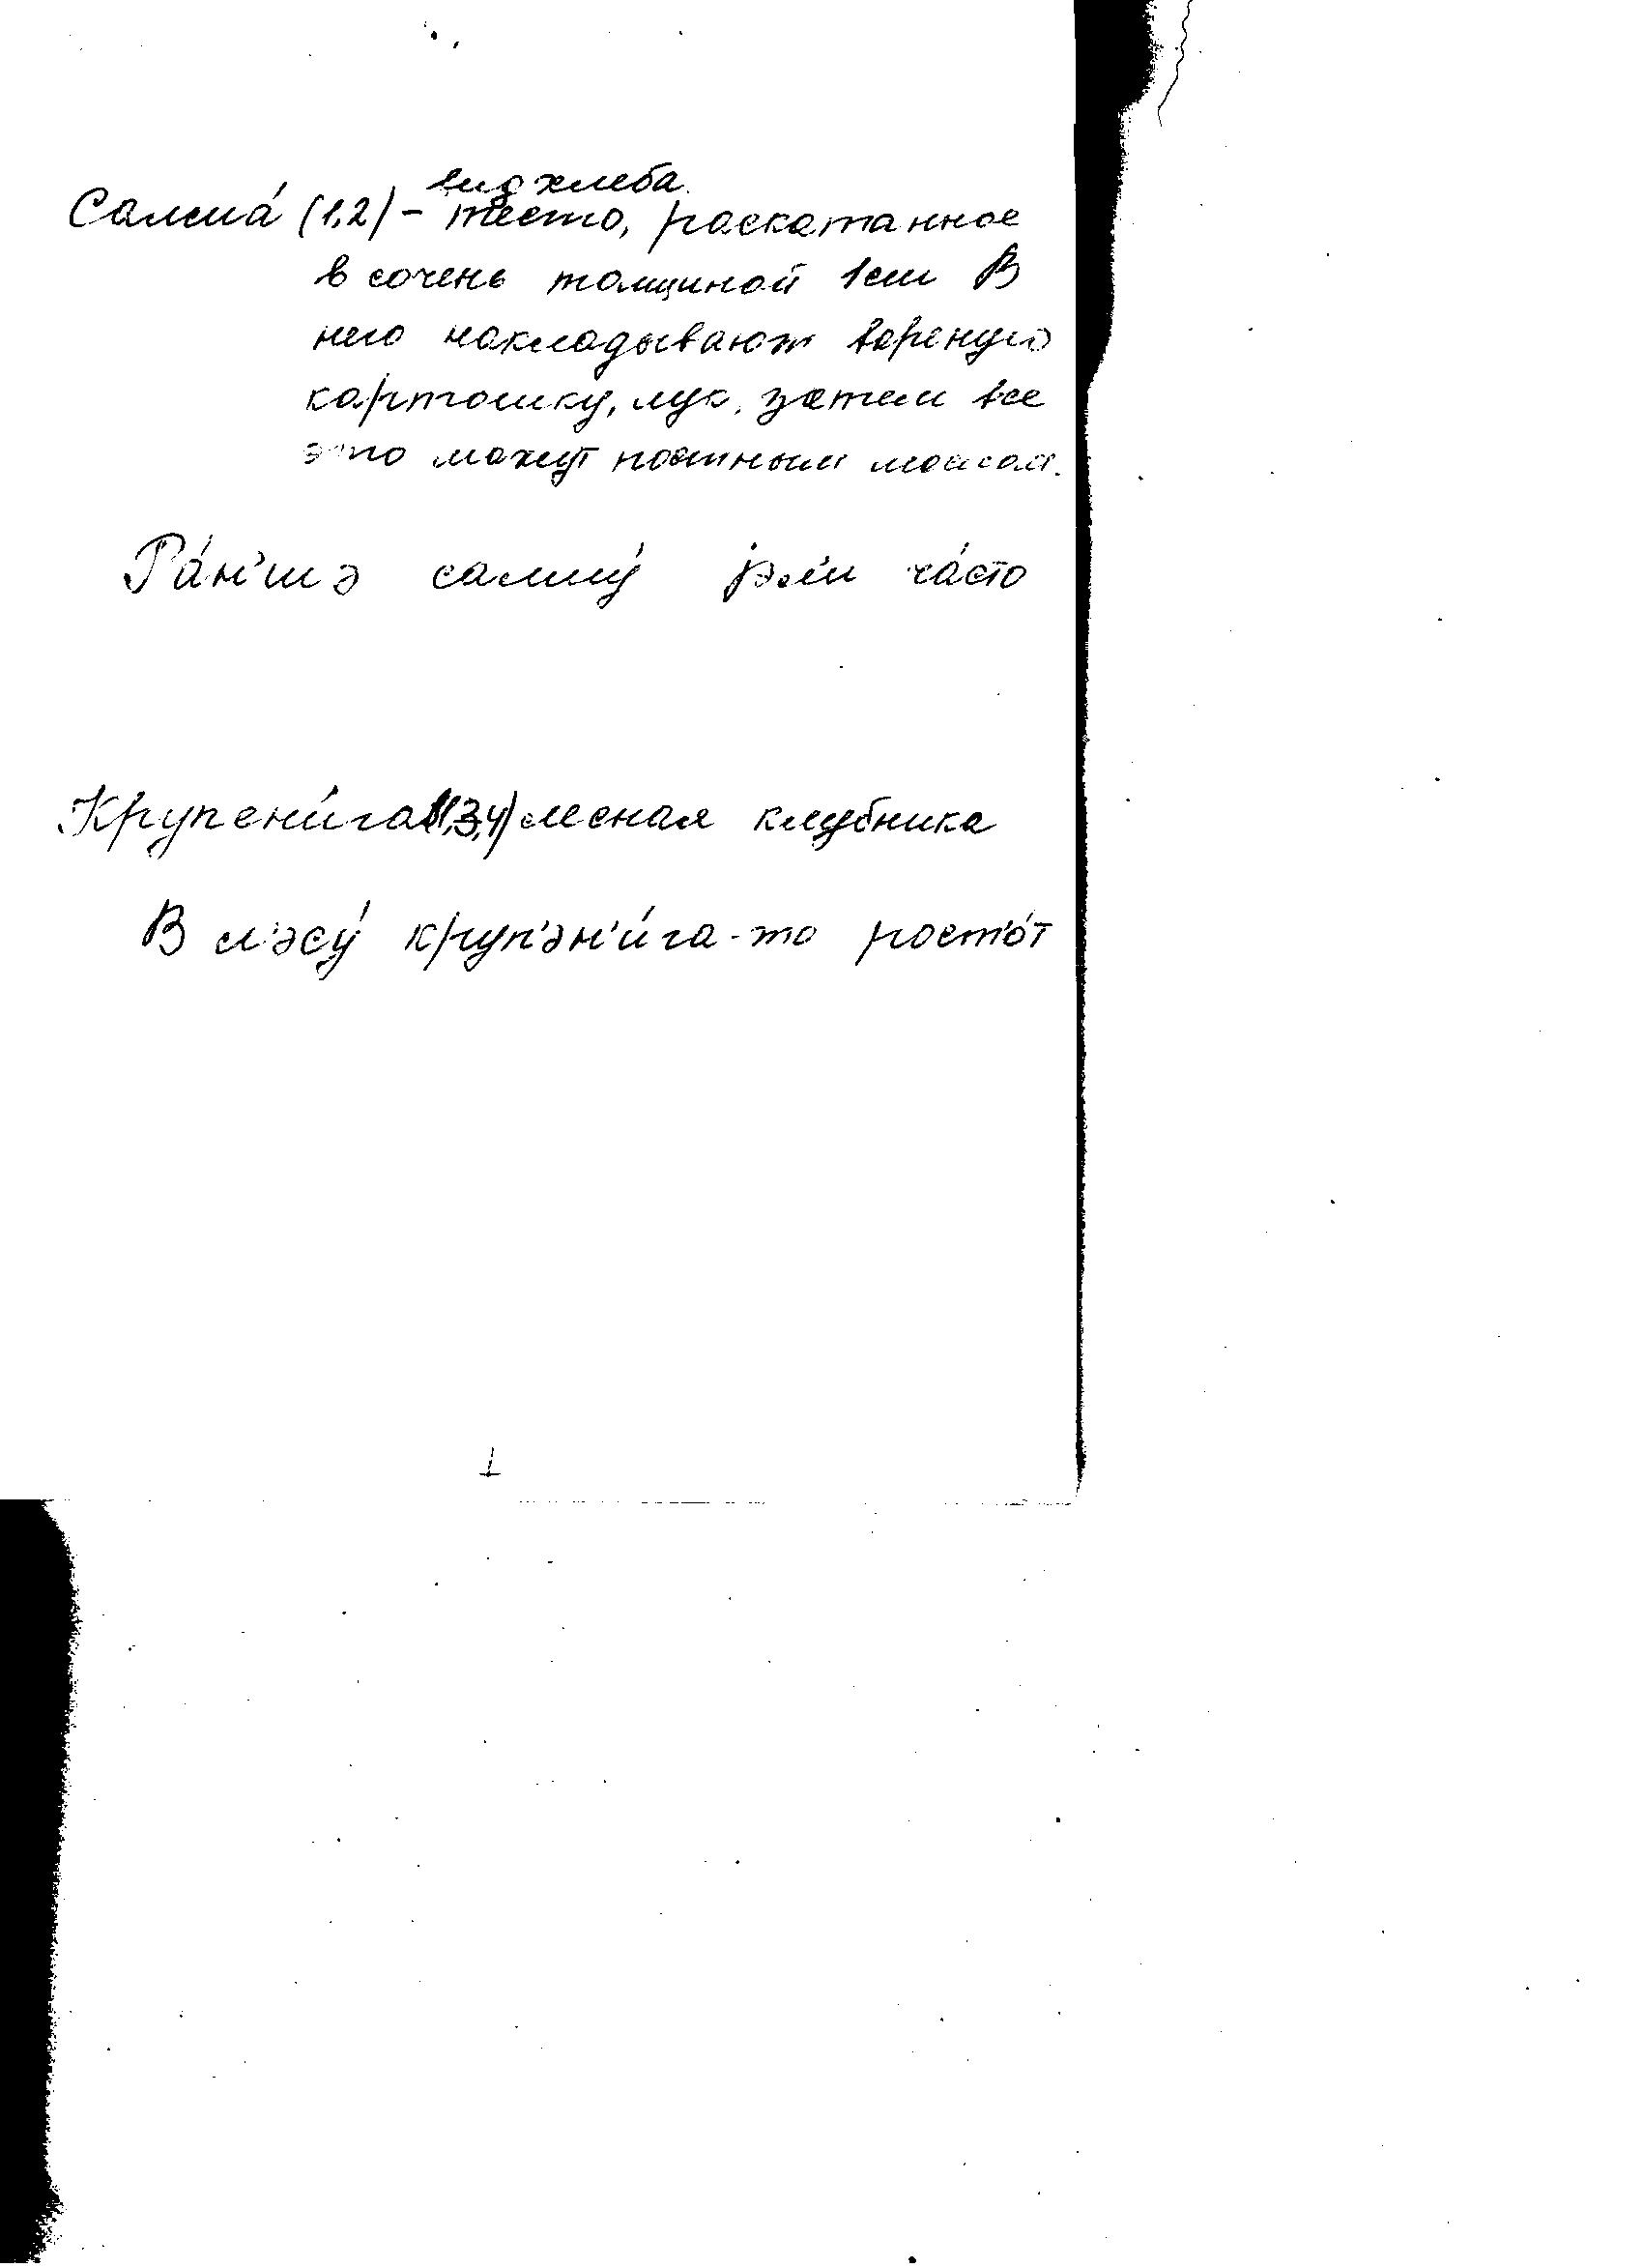 вид хлеба.
Салма́ (1,2) – тесто, раскатанное
в сочень толщиной 1см В
него накладывают вареную
картошку, лук, затем все
это мажут постным маслом.
Ра́н'шэ салму́ jэл'и ча́сто
Крупени́га (1,3,4) лесная клубника
В л'эсу́ круп'эн'и́га-то рост'о́т